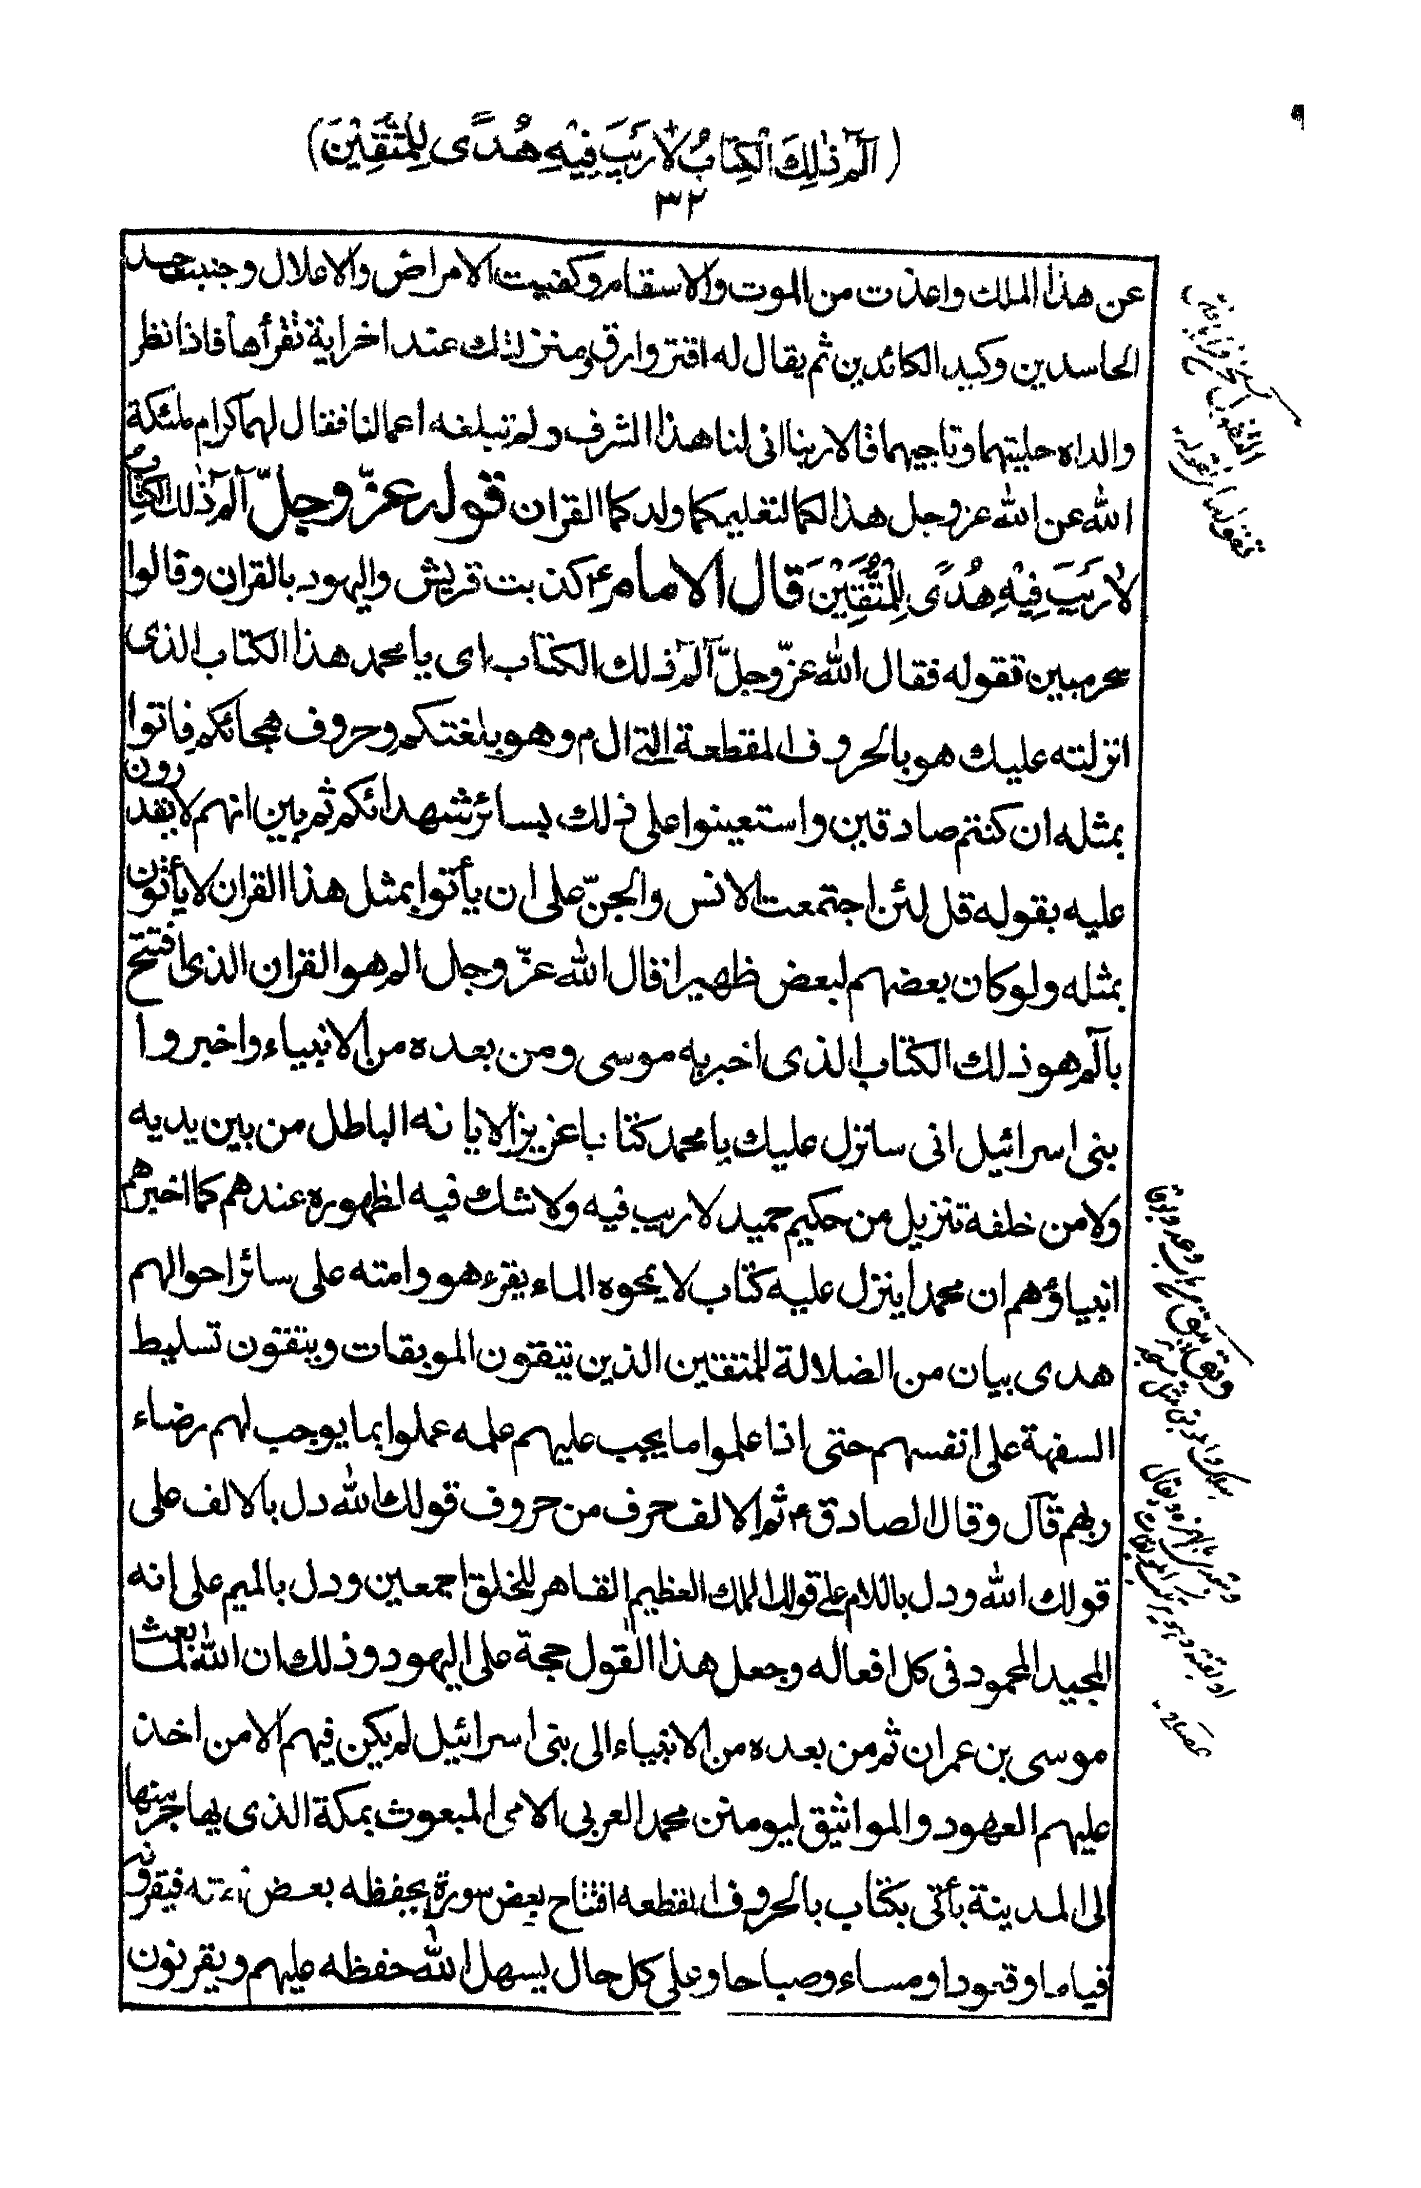 (الٓمٓ ذٰلِكَ الْكِتَابُ لَا رَيْبَ فِيْهِ هُدًى لِلْمُتَّقِيْنَ)
٣٢
عن هذا الملك واعذت من الموت والاسقام وكفيت الامراض والاعلال وجنبت حسد
الحاسدين وكيد الكائدين ثم يقال له اقرء وارق ومنزلتك عند اخر اية تقرأها فاذا نظر
والداه حليتهما وتاجيهما قالا ربنا انى لنا هذا الشرف ولم تبلغه اعمالنا فقال لهما كرام ملئكة
الله عن الله عز وجل هذا لكما لتعليمكما ولدكما القران قوله عزّ وجلّ الٓمٓ ذٰلك الكتابُ
لٰا رَيْبَ فِيْهِ هُدًى لِلْمُتَّقِيْنَ قال الامام ع كذبت قريش واليهود بالقران وقالوا
سحر مبين تقوله فقال الله عزّ وجلّ آلم ذلك الكتاب اى يا محمد هذا الكتاب الذى
انزلته عليك هو بالحروف المقطعة التى ا ل م وهو بلغتكم وحروف هجائكم فاتوا
بمثله ان كنتم صادقين واستعينوا على ذلك بسائر شهدائكم ثم بين انهم لا يقدرون
عليه بقوله قل لئن اجتمعت الانس والجنّ على ان يأتوا بمثل هذا القران لا يأتون
بمثله ولو كان بعضهم لبعض ظهيرا قال الله عزّ وجل الم هو القران الذى افتتح
بآلم هو ذلك الكتاب الذى اخبر به موسى ومن بعده من الانبياء واخبروا
بنى اسرائيل انى سانزل عليك يا محمد كتابا عزيزا لا يأته الباطل من بين يديه
ولا من خلفه تنزيل من حكيم حميد لا ريب فيه ولا شك فيه لظهوره عندهم كما اخبرهم
انبياؤهم ان محمدا ينزل عليه كتاب لا يمحوه الماء يقرء هو وامته على سائر احوالهم
هدى بيان من الضلالة للمتقين الذين يتقون الموبقات ويتقون تسليط
السفهة على انفسهم حتى اذا علموا ما يجب عليهم علمه عملوا بما يوجب لهم رضاء
ربهم قال وقال الصادق ع ثم الالف حرف من حروف قولك الله دل بالالف على
قولك الله ودل باللام على قولك الملك العظيم القاهر للخلق اجمعين ودل بالميم على انه
المجيد المحمود فى كل افعاله وجعل هذا القول حجة على اليهود وذلك ان الله لما بعث
موسى بن عمران ثم من بعده من الانبياء الى بنى اسرائيل لم يكن فيهم الا من اخذ
عليهم العهود والمواثيق ليومنن بمحمد العربى الامى المبعوث بمكة الذى يهاجر منها
الى المدينة يأتى بكتاب بالحروف المقطعه افتتاح بعض سورة يحفظه بعض امته فيقرؤنه
قياما وقعودا ومساء وصباحا وعلى كل حال يسهل الله حفظه عليهم ويقرنون